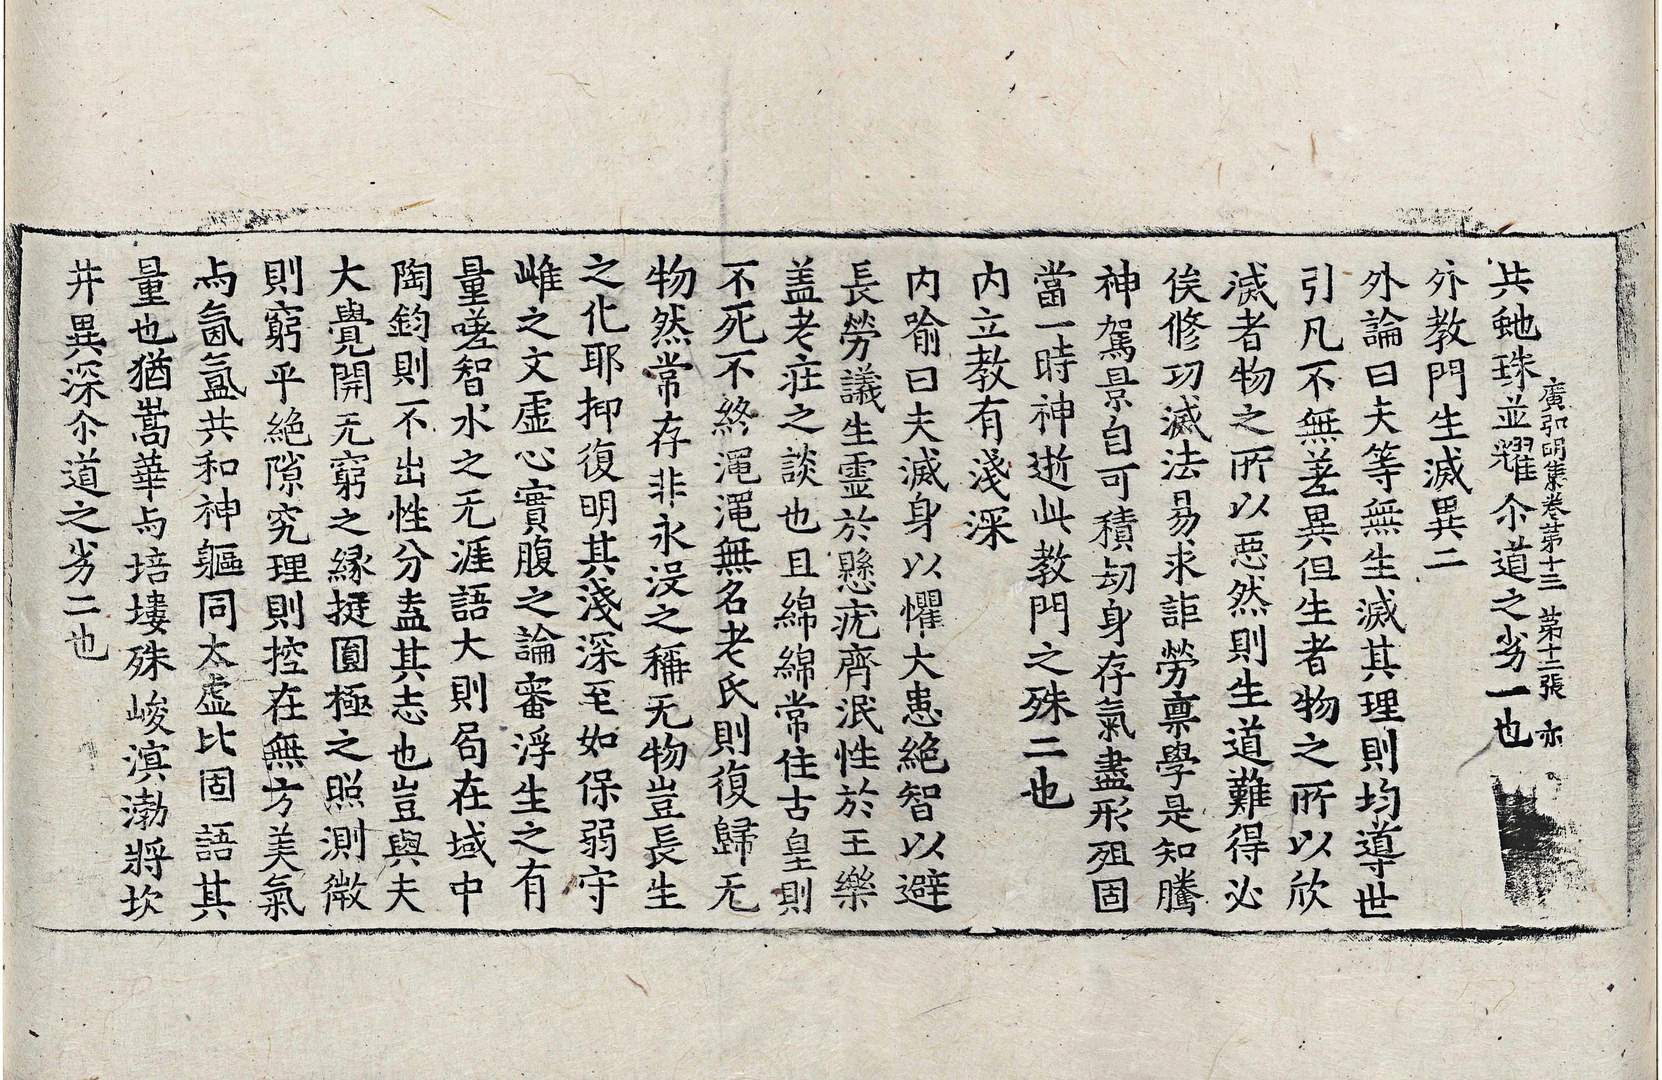 廣弘明集卷苐十三　苐十二張　亦
共虵珠並耀尒道之劣一也
外教門生滅異二
外論曰夫等無生滅其理則均導世
引凡不無差異但生者物之所以欣
滅者物之所以惡然則生道難得必
俟修功滅法易求詎勞稟學是知騰
神駕景自可積劫身存氣盡形殂固
當一時神逝此教門之殊二也
内立教有淺深
内喻曰夫滅身以懼大患絶智以避
長勞議生靈於懸疣齊泯性於王樂
盖老莊之談也且綿綿常住古皇則
不死不終渑渑無名老氏則復歸无
物然常存非永没之稱无物豈長生
之化耶抑復明其淺深至如保弱守
雌之文虚心實腹之論審浮生之有
量嗟智水之无涯語大則局在域中
陶鈞則不出性分盍其志也豈與夫
大覺開无窮之縁挺圎極之照測微
則窮乎絶隙究理則控在無方美氣
与氤氳共和神軀同太虚比固語其
量也猶嵩華与培塿殊峻溟渤將坎
井異深尒道之劣二也